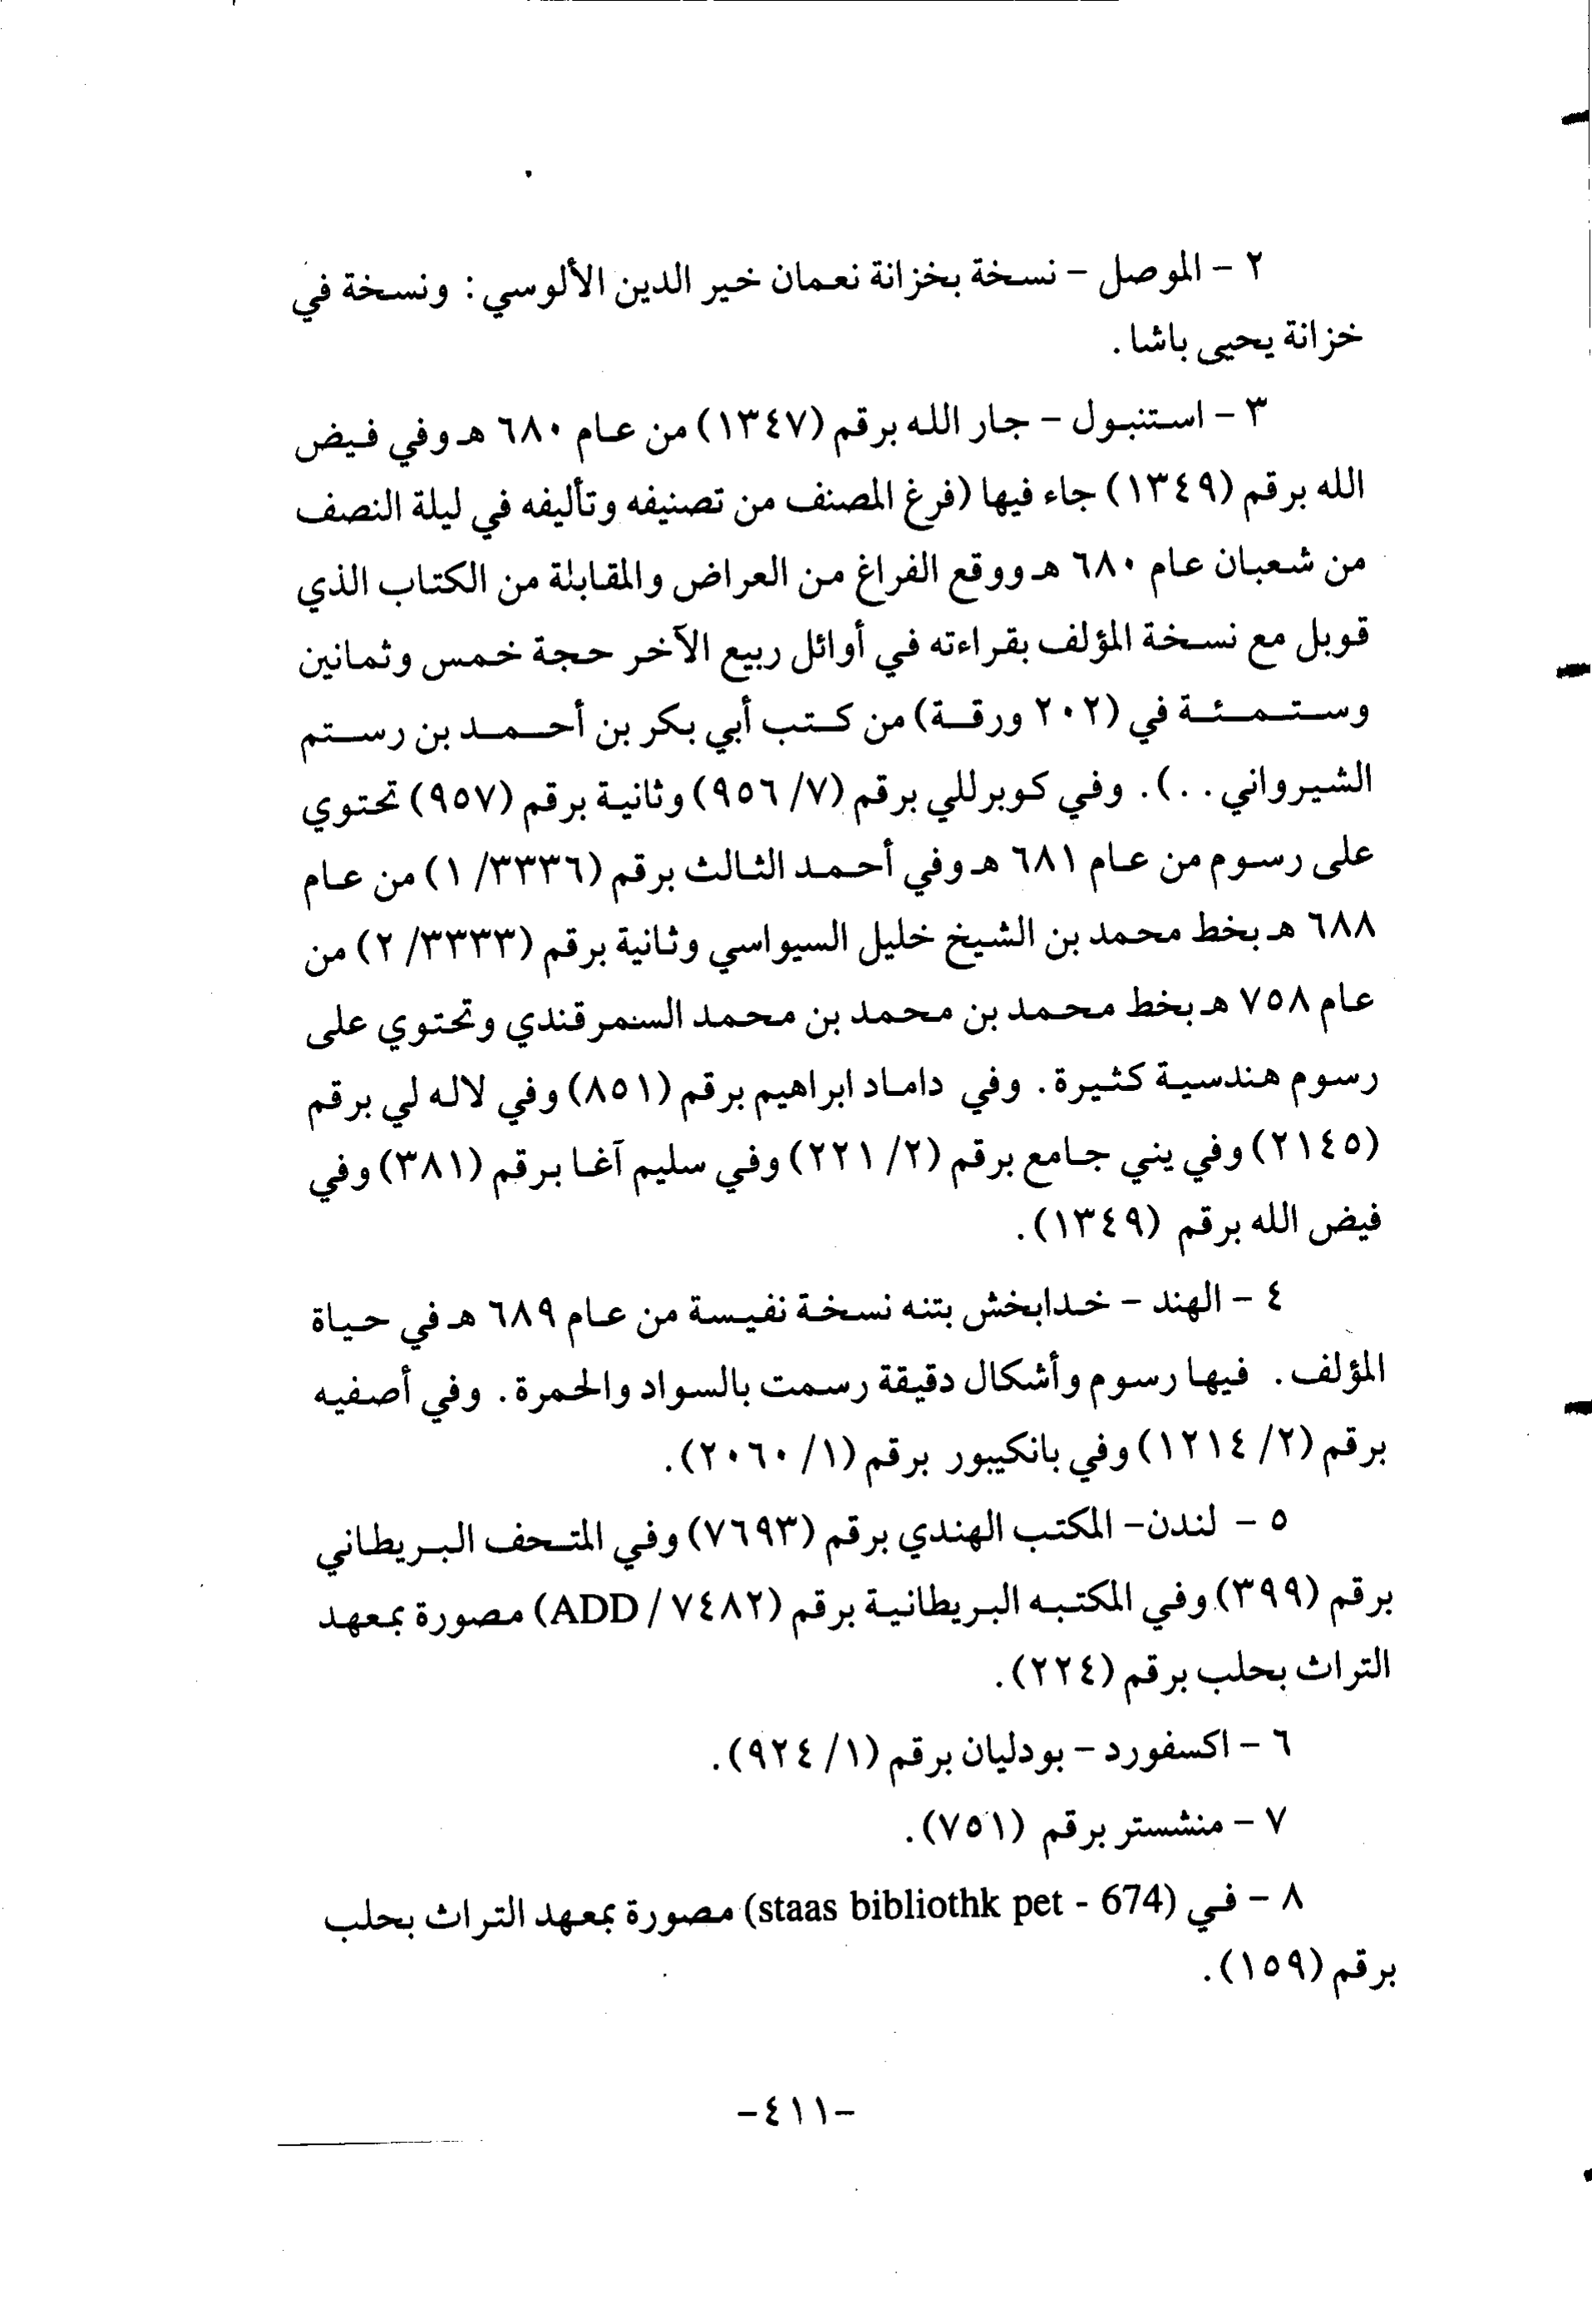 ٢ - الموصل - نسخة بخزانة نعمان خير الدين الألوسي : ونسخة في
خزانة يحيى باشا .
٣ - استنبول - جار الله برقم (١٣٤٧) من عام ٦٨٠ هـ وفي فيض
الله برقم (١٣٤٩) جاء فيها (فرغ المصنف من تصنيفه وتأليفه في ليلة النصف
من شعبان عام ٦٨٠ هـ ووقع الفراغ من العراض والمقابلة من الكتاب الذي
قوبل مع نسخة المؤلف بقراءته في أوائل ربيع الآخر حجة خمس وثمانين
وستمئة في (٢٠٢ ورقة) من كتب أبي بكر بن أحمد بن رستم
الشيرواني . .) . وفي كوبرللي برقم (٧/ ٩٥٦) وثانية برقم (٩٥٧) تحتوي
على رسوم من عام ٦٨١ هـ وفي أحمد الثالث برقم (٣٣٣٦/ ١) من عام
٦٨٨ هـ بخط محمد بن الشيخ خليل السيواسي وثانية برقم (٣٣٣٣/ ٢) من
عام ٧٥٨ هـ بخط محمد بن محمد بن محمد السمرقندي وتحتوي على
رسوم هندسية كثيرة . وفي داماد ابراهيم برقم (٨٥١) وفي لاله لي برقم
(٢١٤٥) وفي يني جامع برقم (٢/ ٢٢١) وفي سليم آغا برقم (٣٨١) وفي
فيض الله برقم (١٣٤٩) .
٤ - الهند - خدابخش بتنه نسخة نفيسة من عام ٦٨٩ هـ في حياة
المؤلف . فيها رسوم وأشكال دقيقة رسمت بالسواد والحمرة . وفي أصفيه
برقم (٢/ ١٢١٤) وفي بانكيبور برقم (١/ ٢٠٦٠) .
٥ - لندن - المكتب الهندي برقم (٧٦٩٣) وفي المتحف البريطاني
برقم (٣٩٩) وفي المكتبه البريطانية برقم (٧٤٨٢ / ADD) مصورة بمعهد
التراث بحلب برقم (٢٢٤) .
٦ - اكسفورد - بودليان برقم (١/ ٩٢٤) .
٧ - منشستر برقم (٧٥١) .
٨ - في (staas bibliothk pet - 674) مصورة بمعهد التراث بحلب
برقم (١٥٩) .
-٤١١-